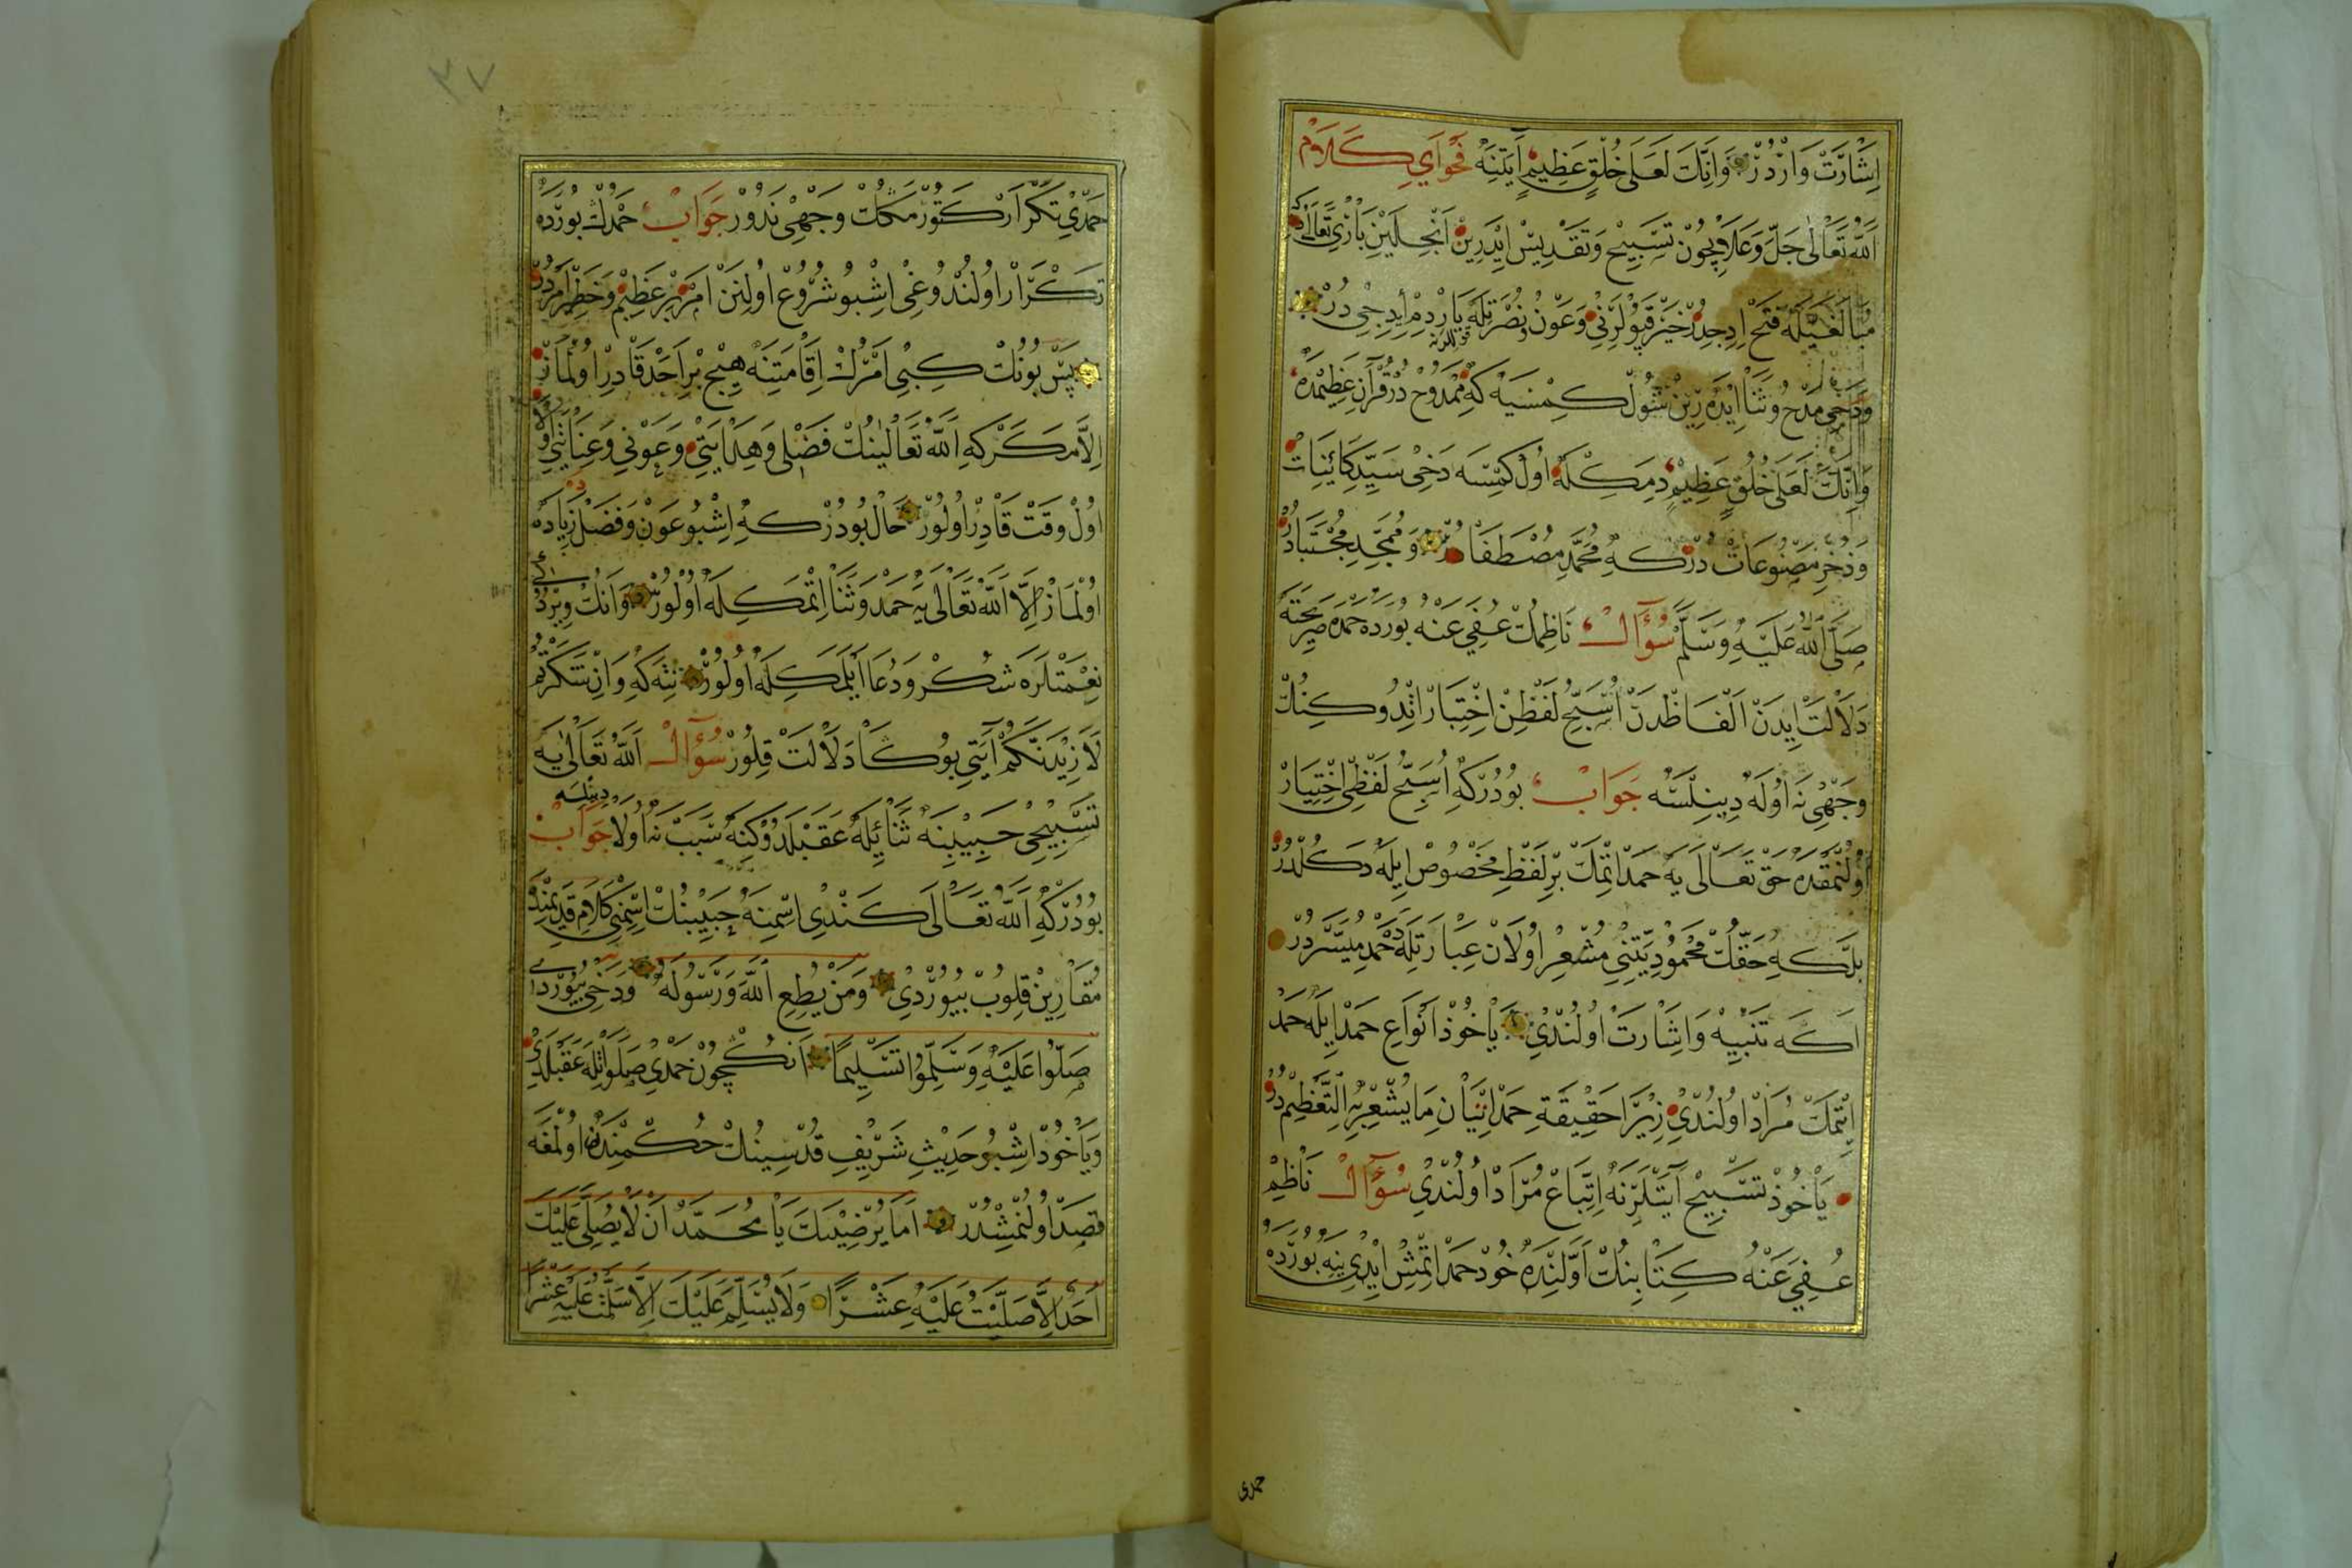 اِشَارَتْ وَارْدُرْ وَاِنَّكَ لَعَلَى خُلُقٍ عَظِيمٍ آيَتِنَه فَحْوَايِ كَلَامْ
اَللّٰه تَعَالٰى جَلَّ وَعَلَا چُونْ تَسْبِيحْ وَتَقْدِيسْ اِيدَرِينْ اَنْجِلَيِنْ بَارِي تَعَالٰى كه
مُبَالَغَيْلَه فَتْح اِدِجِدُرْ خَيْر قَپُولَرِنِي وَعَوْنُ نُصْرَتِلَه يَارْدِمْ اِيدِجِى دُرْ
وَدَخِى مَدْحُ وَثَنَا اِيدَه رِينْ شُولْ كِمْسَيَه كِه مَمْدُوحْ دُرْ قُرْآنِ عَظِيمْدَه
وَاِنَّكَ لَعَلَى خُلُقٍ عَظِيمٍ دِمَكِلَه اُولْ كِمْسَه دَخِى سَيِّدِ كَائِنَاتْ
وَذُخْرِ مَصْنُوعَاتْ دُرْ كِه مُحَمَّدِ مُصْطَفَا دُرْ وَمُمَجَّدِ مُجْتَبَادُرْ
صَلَّى اللّٰه عَلَيْهِ وَسَلَّمْ سُؤَالْ نَاظِمُكْ عُفِيَ عَنْهُ بُورَدَه حَمْدَه صَرِيحْتَه
دَلَالَتْ اِيدَنْ اَلْفَاظْدَنْ اُسَبِّحُ لَفْظِنْ اِخْتِيَارْ اِتْدُوكِنُكْ
وَجْهِى نَه اُولَه دِينِلْسَه جَوَابْ بُودُرْكِه اُسَبِّحُ لَفْظِى اِخْتِيَارْ
اُولُنْمَقْدَه حَقْ تَعَالَى يَه حَمْد اِتْمَكْ بِرْ لَفْظِ مَخْصُوصْ اِيلَه دَكُلْدُرْ
بَلْكِه حَقُّكْ مَحْمُودِيَّتِنِي مُشْعِرْ اُولَانْ عِبَارَتِلَه دَه حَمْد مُيَسَّرْدُرْ
اَكَه تَنْبِيهْ وَاِشَارَتْ اُولُنْدِى يَاخُوذْ اَنْوَاعِ حَمْد اِيلَه حَمْد
اِتْمَكْ مُرَادْ اُولُنْدِى زِيرَا حَقِيقَةِ حَمْد اِتْيَانِ مَا يُشْعِرُ بِهِ التَّعْظِيمْ دُرْ
يَاخُوذْ تَسْبِيحْ آيَتْلَرِنَه اِتِّبَاعْ مُرَادْ اُولُنْدِى سُؤَالْ نَاظِمْ
عُفِيَ عَنْهُ كِتَابِنُكْ اَوَّلِنْدَه خُودْ حَمْد اِتْمِشْ اِيدِى يِنَه بُورَدَه
حمدى
٣٧
حَمْدِي تَكْرَارْ كَتُورْمَكُكْ وَجْهِى نَدُورْ جَوَابْ حَمْدُكْ بُورَدَه
تَكْرَارْ اُولُنْدُوغِى اِشْبُو شُرُوعْ اُولِنَنْ اَمْر بِرْ عَظِيمْ وَخَطِيرْ اَمْردُرْ
پَسْ بُونُكْ كِبِى اَمْرُكْ اِقَامَتِنَه هِيچْ بِرْ اَحَدْ قَادِرْ اُولْمَازْ
اِلَّا مَكَرْ كِه اَللّٰه تَعَالٰينُكْ فَضْلِى وَهِدَايَتِي وَعَوْنِي وَعِنَايَتِي اولا
اُولْ وَقْتْ قَادِرْ اُولُورْ حَالْ بُودُرْ كِه اِشْبُو عَوْنْ وَفَضْل زِيَادَه
اُولْمَازْ اِلَّا اَللّٰه تَعَالٰى يَه حَمْد وَثَنَا اِتْمَكِلَه اُولُورْ وَانُكْ وِيرْدُكى
نِعْمَتْلَرَه شُكْر وَدُعَا اَيْلَمَكِلَه اُولُورْ نِتَه كِه وَاِنْ شَكَرْتُمْ
لَاَزِيدَنَّكُمْ آيَتِي بُوكَا دَلَالَتْ قِلُورْ سُؤَالْ اَللّٰه تَعَالٰى يَه
تَسْبِيحِى حَبِيبِنَه ثَنَائِلَه عَقَبْلَدُوكِنَه سَبَبْ نَه اُولَا دينلسه جَوَابْ
بُودُرْكِه اَللّٰه تَعَالَى كَنْدِى اِسْمِنَه حَبِيبِنُكْ اِسْمِنِي كَلَامِ قَدِيمِنْدَه
مُقَارِينْ قِلُوبْ بُيُورْدِى وَمَنْ يُطِعِ اللّٰهَ وَرَسُولَهُ وَدَخِى بُيُورْدى
صَلُّوا عَلَيْهِ وَسَلِّمُوا تَسْلِيمًا اَنُكْچُونْ حَمْدِى صَلَوَاتِلَه عَقَبْلَدِى
وَيَاخُودْ اِشْبُو حَدِيثِ شَرِيفِ قُدْسِينُكْ حُكْمِنْدَه اُولْمَغَه
قَصْد اُولُنْمِشْدُرْ اَمَا يُرْضِيكَ يَا مُحَمَّدْ اَنْ لَا يُصَلِّيَ عَلَيْكَ
اَحَدٌ اِلَّا صَلَّيْتُ عَلَيْهِ عَشْرًا وَلَا يُسَلِّمَ عَلَيْكَ اِلَّا سَلَّمْتُ عَلَيْهِ عَشْرًا